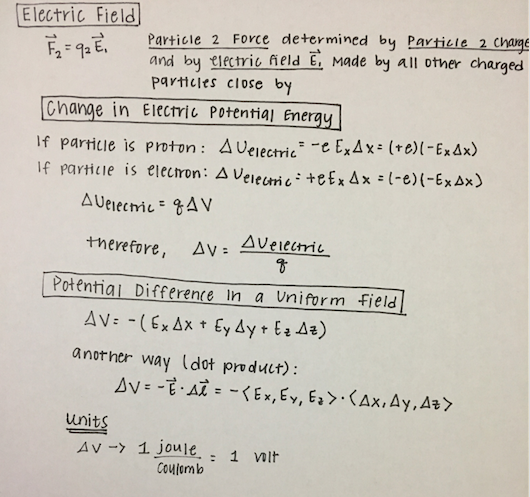 Electric Field
F⃗₂ = q₂E⃗₁ Particle 2 Force determined by Particle 2 Charge
and by electric field E⃗₁ made by all other charged
particles close by
Change in Electric Potential Energy
If particle is proton: ΔUelectric = -e ExΔx = (+e)(-ExΔx)
If particle is electron: ΔUelectric = +eExΔx = (-e)(-ExΔx)
ΔUelectric = qΔV
therefore, ΔV = ΔUelectric / q
Potential Difference In a Uniform Field
ΔV = -(ExΔx + EyΔy + EzΔz)
another way (dot product):
ΔV = -E⃗·Δl⃗ = -<Ex, Ey, Ez>·<Δx, Δy, Δz>
Units
ΔV → 1 joule / Coulomb = 1 volt